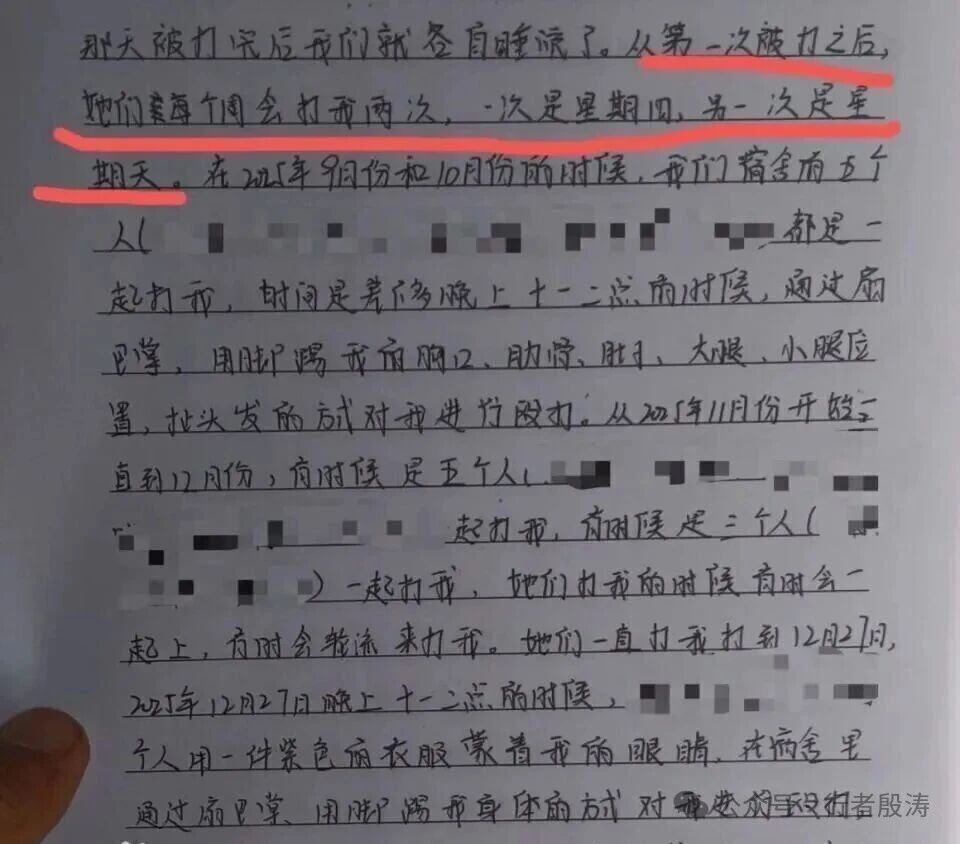 那天被打完后我们就各自睡觉了。从第一次被打之后,
她们每个周会打我两次,一次是星期四,另一次是星
期天。在2025年9月份和10月份的时候,我们宿舍有五个
人( 都是一
起打我,时间是差不多晚上十一二点的时候,通过扇
巴掌,用脚踢我的胸口、肋骨、肚子、大腿、小腿位
置,扯头发的方式对我进行殴打。从2025年11月份开始一
直到12月份,有时候是五个人(
起打我,有时候是三个人(
)一起打我,她们打我的时候有时会一
起上,有时会轮流来打我。她们一直打我打到12月27日,
2025年12月27日晚上十一二点的时候,
个人用一件紫色的衣服蒙着我的眼睛,在宿舍里
通过扇巴掌、用脚踢我身体的方式对我进行殴打
公众号·记者殷涛